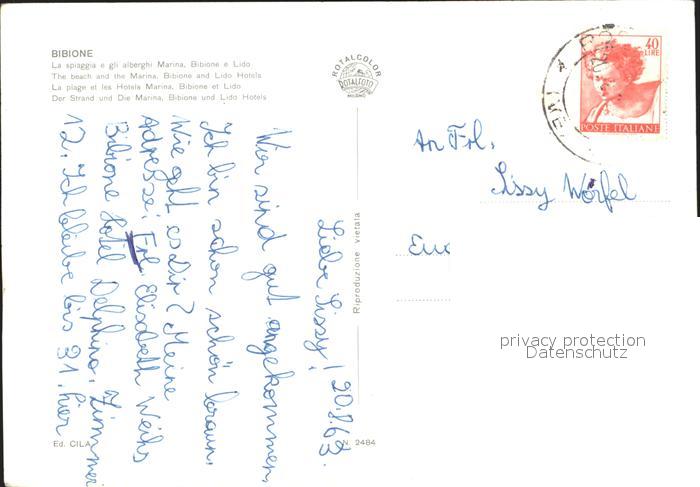 BIBIONE
La spiaggia e gli alberghi Marina, Bibione e Lido
The beach and the Marina, Bibione and Lido Hotels
La plage et les Hotels Marina, Bibione et Lido
Der Strand und Die Marina, Bibione und Lido Hotels
ROTALCOLOR
ROTALFOTO
MILANO
40
LIRE
POSTE ITALIANE
An Frl.
Lissy Wörfel
privacy protection
Datenschutz
Riproduzione vietata
20.8.63.
Liebe Lissy!
Wir sind gut angekommen.
Ich bin schon schön braun.
Wie geht es Dir? Meine
Adresse: Frl. Elisabeth Weihs
Bibione Hotel Delphino, Zimmer
12. Ich bleibe bis 31. hier
Ed. CILA
N. 2484